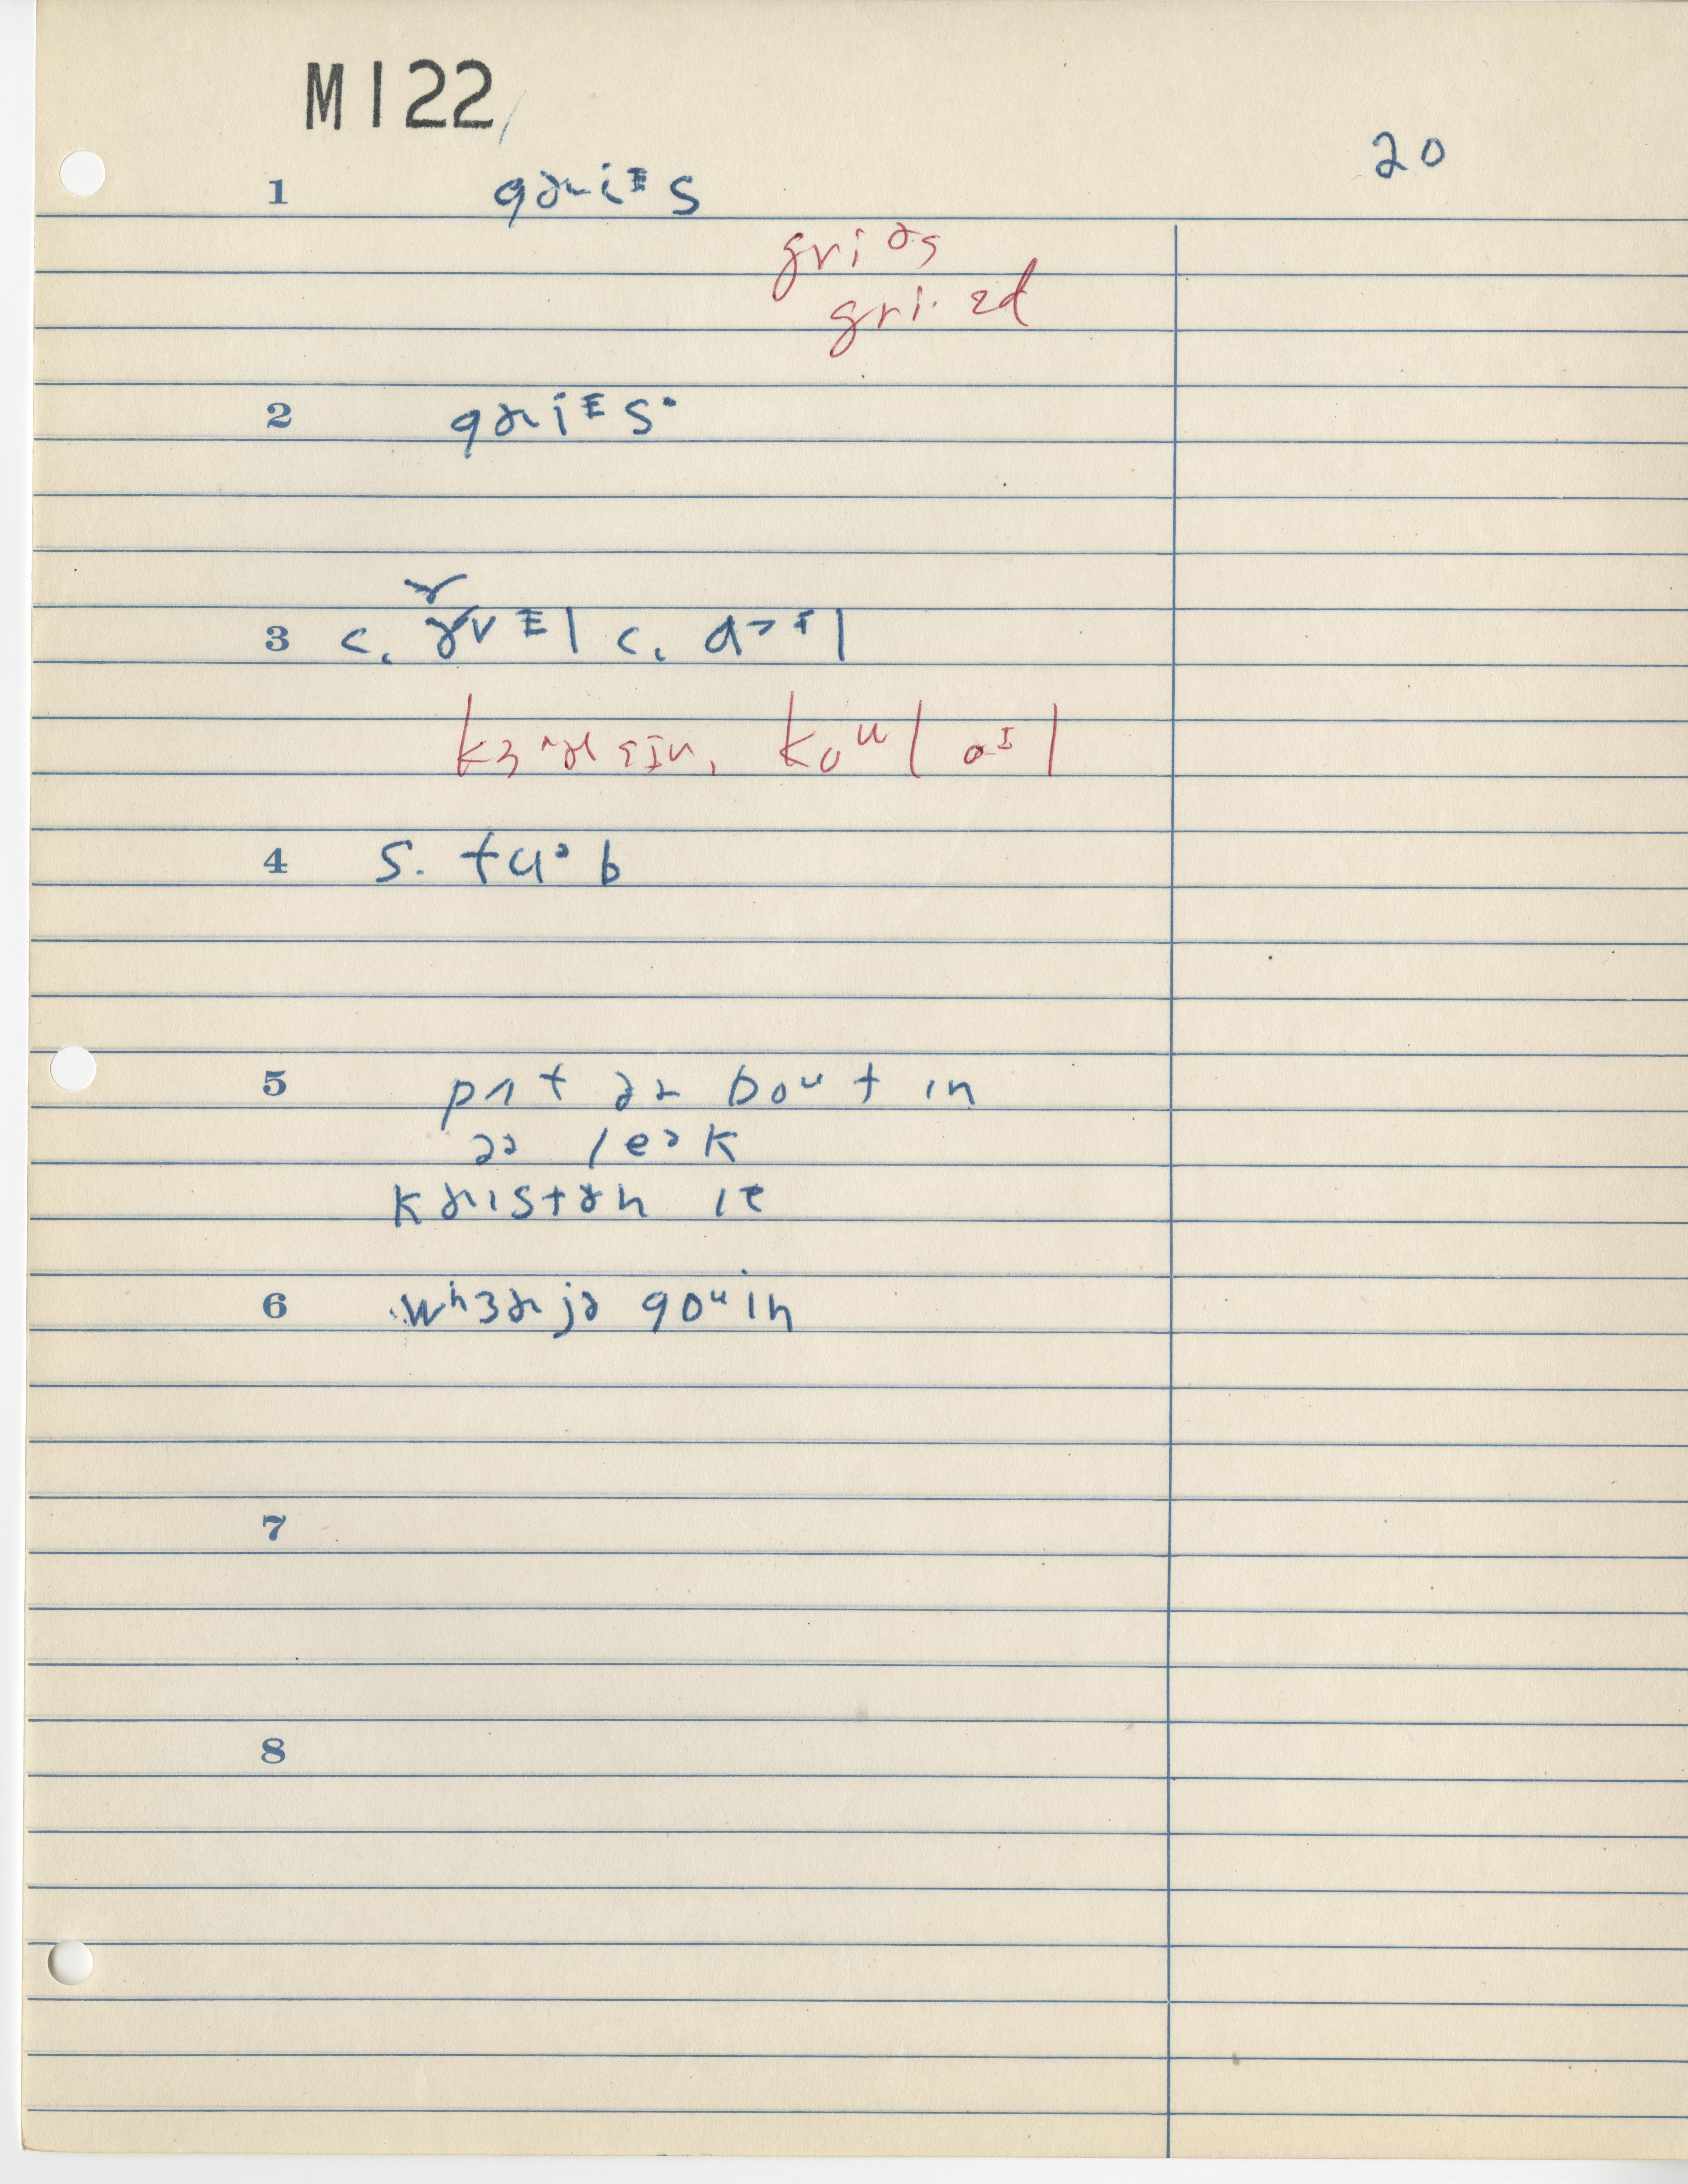 M122
20
1 gɚiᴵs
gri əs
gri· zd
2 gɚiᴵs·
3 c. ɚvᴵl c. aᴵl
kɜrəsɪn, koᵘl oᴵl
4 s. tuᵊb
5 pʌt ər boᵘt in
ðə leək
kɚistən it
6 wʰɜɚ jə goᵘin
7
8